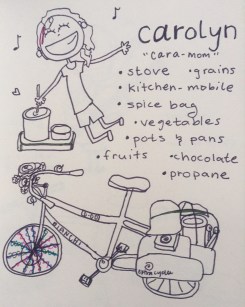 carolyn
"cara-mom"
• stove • grains
• kitchen-mobile
• spice bag
• vegetables
• pots & pans
• fruits • chocolate
• propane
BIANCHI
xtracycle